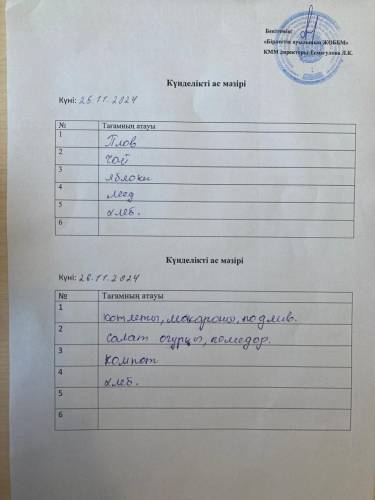 Бекітемін:
«Бірлестік ауылының ЖОББМ»
КММ директоры: Есмагулова Л.К.
Күнделікті ас мәзірі
Күні: 25.11.2024
№ Тағамның атауы
1 Плов
2 Чай
3 яблоки
4 мёд
5 хлеб.
6
Күнделікті ас мәзірі
Күні: 26.11.2024
№ Тағамның атауы
1 котлеты, макароны, подлив.
2 салат огурцы, помедор.
3 компот
4 хлеб.
5
6